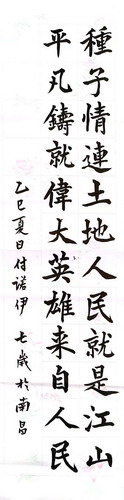 種子情連土地人民就是江山
平凡鑄就偉大英雄来自人民
乙巳夏日付諾伊 七歲於南昌